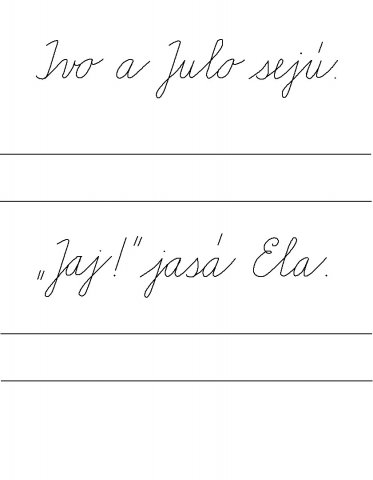 Ivo a Julo sejú.
„Jaj!" jasá Ela.